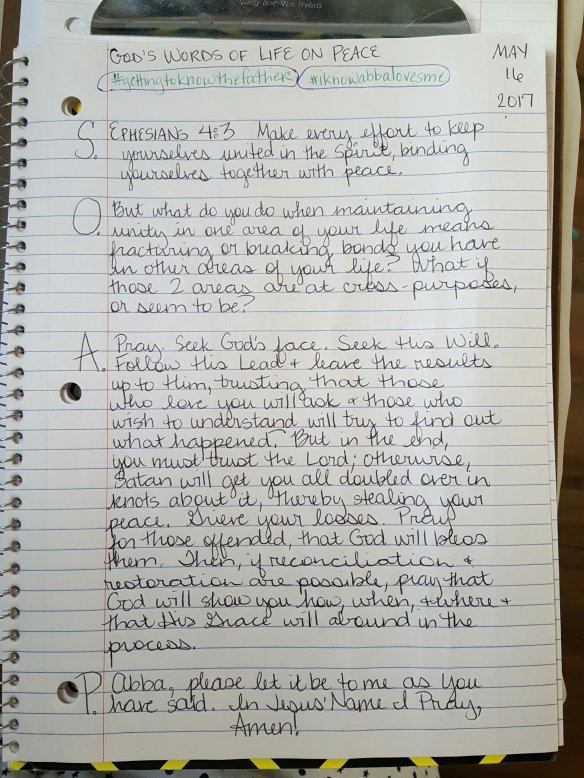 Quality Bind-Rite Products
GOD'S WORDS OF LIFE ON PEACE
MAY
16
2017
#gettingtoknowthefather #iknowabbalovesme
S. EPHESIANS 4:3 Make every effort to keep
yourselves united in the Spirit, binding
yourselves together with peace.
O. But what do you do when maintaining
unity in one area of your life means
fracturing or breaking bonds you have
in other areas of your life? What if
those 2 areas are at cross-purposes,
or seem to be?
A. Pray. Seek God's face. Seek His Will.
Follow His Lead & leave the results
up to Him, trusting that those
who love you will ask & those who
wish to understand will try to find out
what happened. But in the end,
you must trust the Lord; otherwise,
Satan will get you all doubled over in
knots about it, thereby stealing your
peace. Grieve your losses. Pray
for those offended, that God will bless
them. Then, if reconciliation &
restoration are possible, pray that
God will show you how, when, & where &
that His Grace will abound in the
process.
P. Abba, please let it be to me as You
have said. In Jesus' Name I Pray,
Amen!